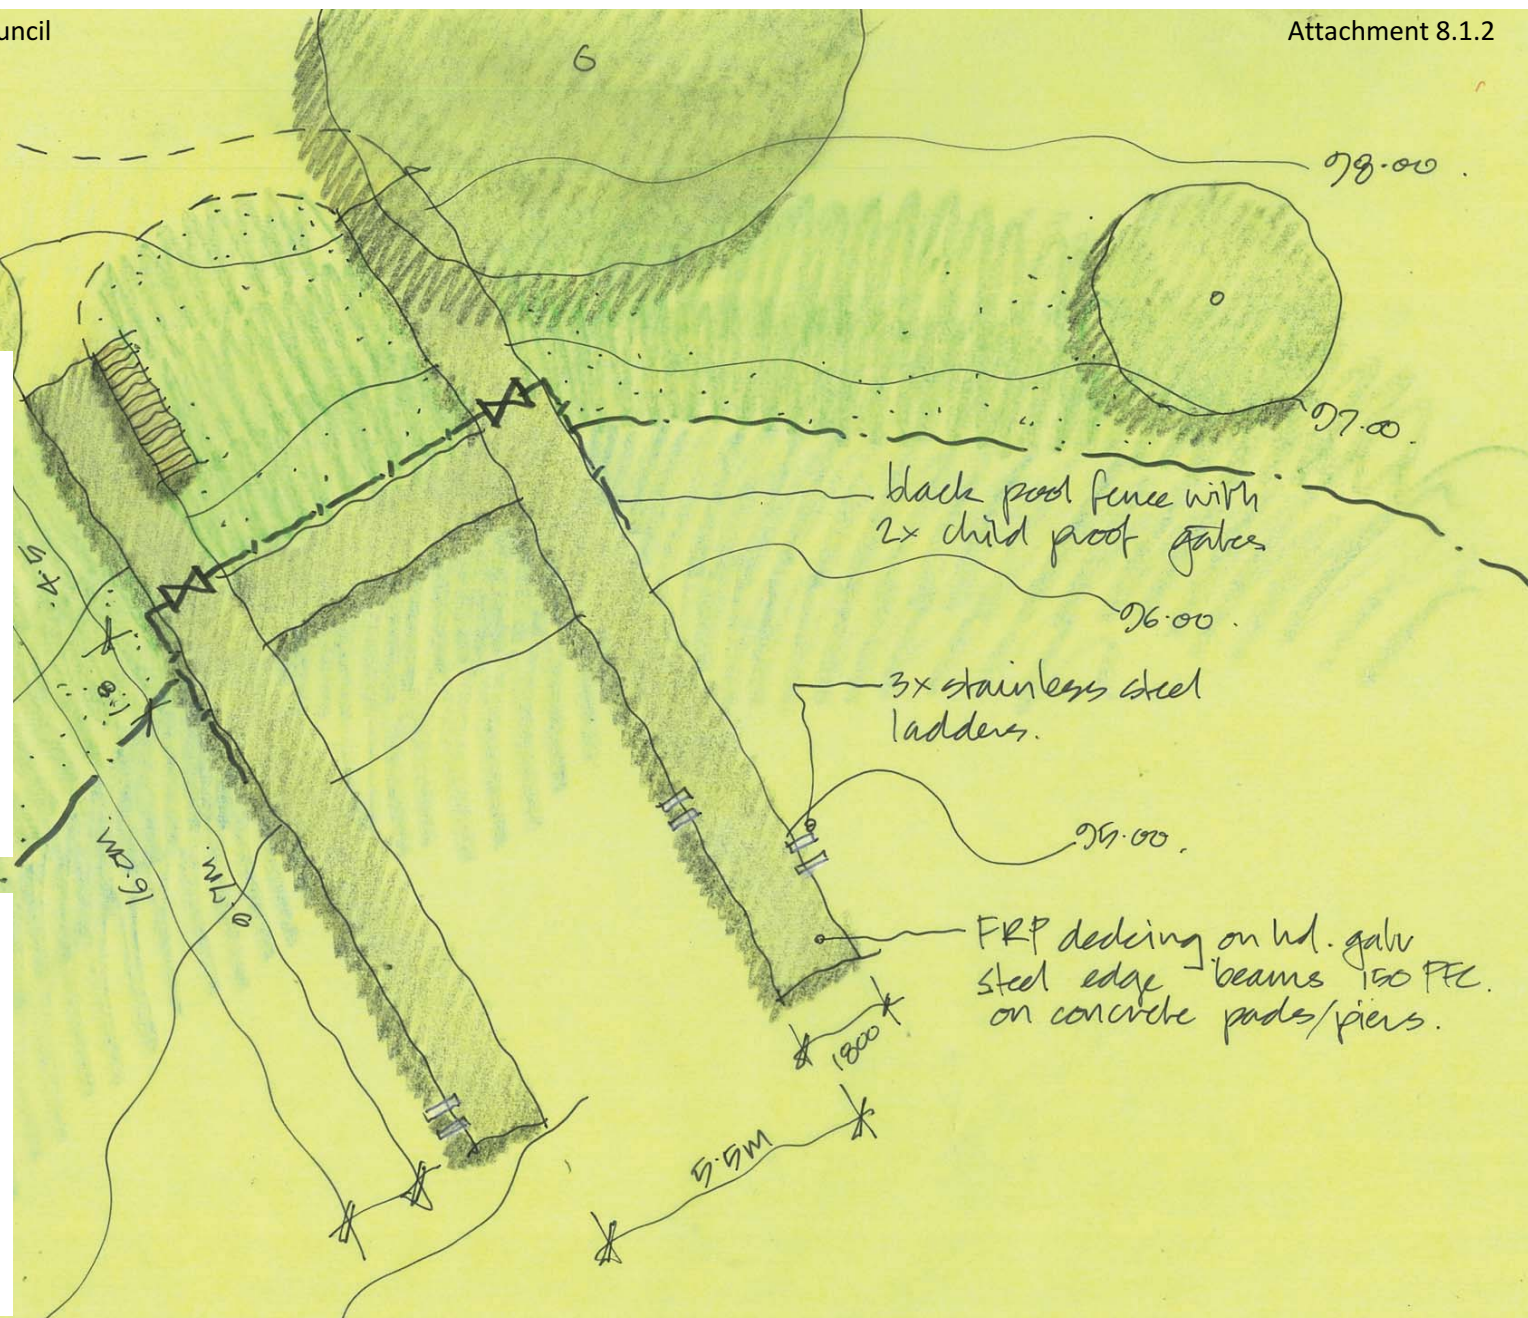 uncil
Attachment 8.1.2
98.00
97.00
black pool fence with
2x child proof gates
96.00
3x stainless steel
ladders.
95.00
FRP decking on hd. galv
steel edge beams 150 PFC.
on concrete pads/piers.
4.5
1.8
16.0m
9.7m
1800
5.5m